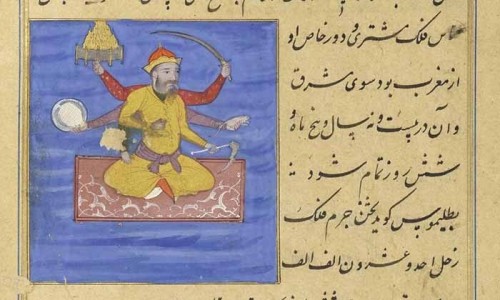 مماس فلک مشتری و دور خاص او
از مغرب بود سوی شرق
و آن در بیست و نه سال و پنج ماه و
شش روز تمام شود
بطلیموس کوید ثخن جرم فلک
زحل احد و عشرون الف الف